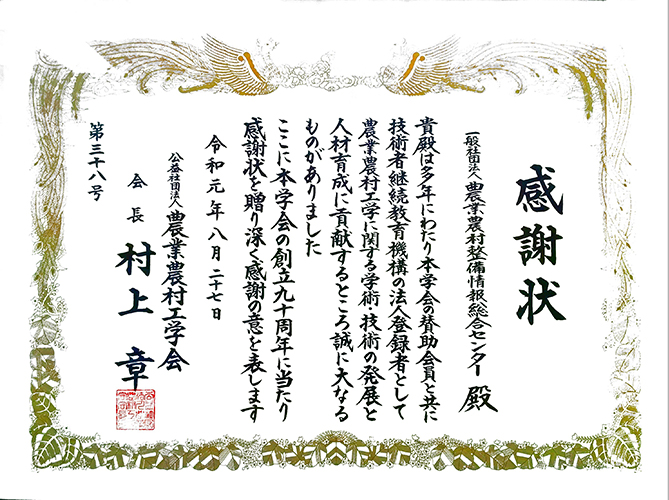 感謝状
一般社団法人 農業農村整備情報総合センター 殿
貴殿は多年にわたり本学会の賛助会員と共に
技術者継続教育機構の法人登録者として
農業農村工学に関する学術・技術の発展と
人材育成に貢献するところ誠に大なる
ものがありました
ここに本学会の創立九十周年に当たり
感謝状を贈り深く感謝の意を表します
令和元年八月二十七日
公益社団法人 農業農村工学会
会長 村上 章
第三十八号